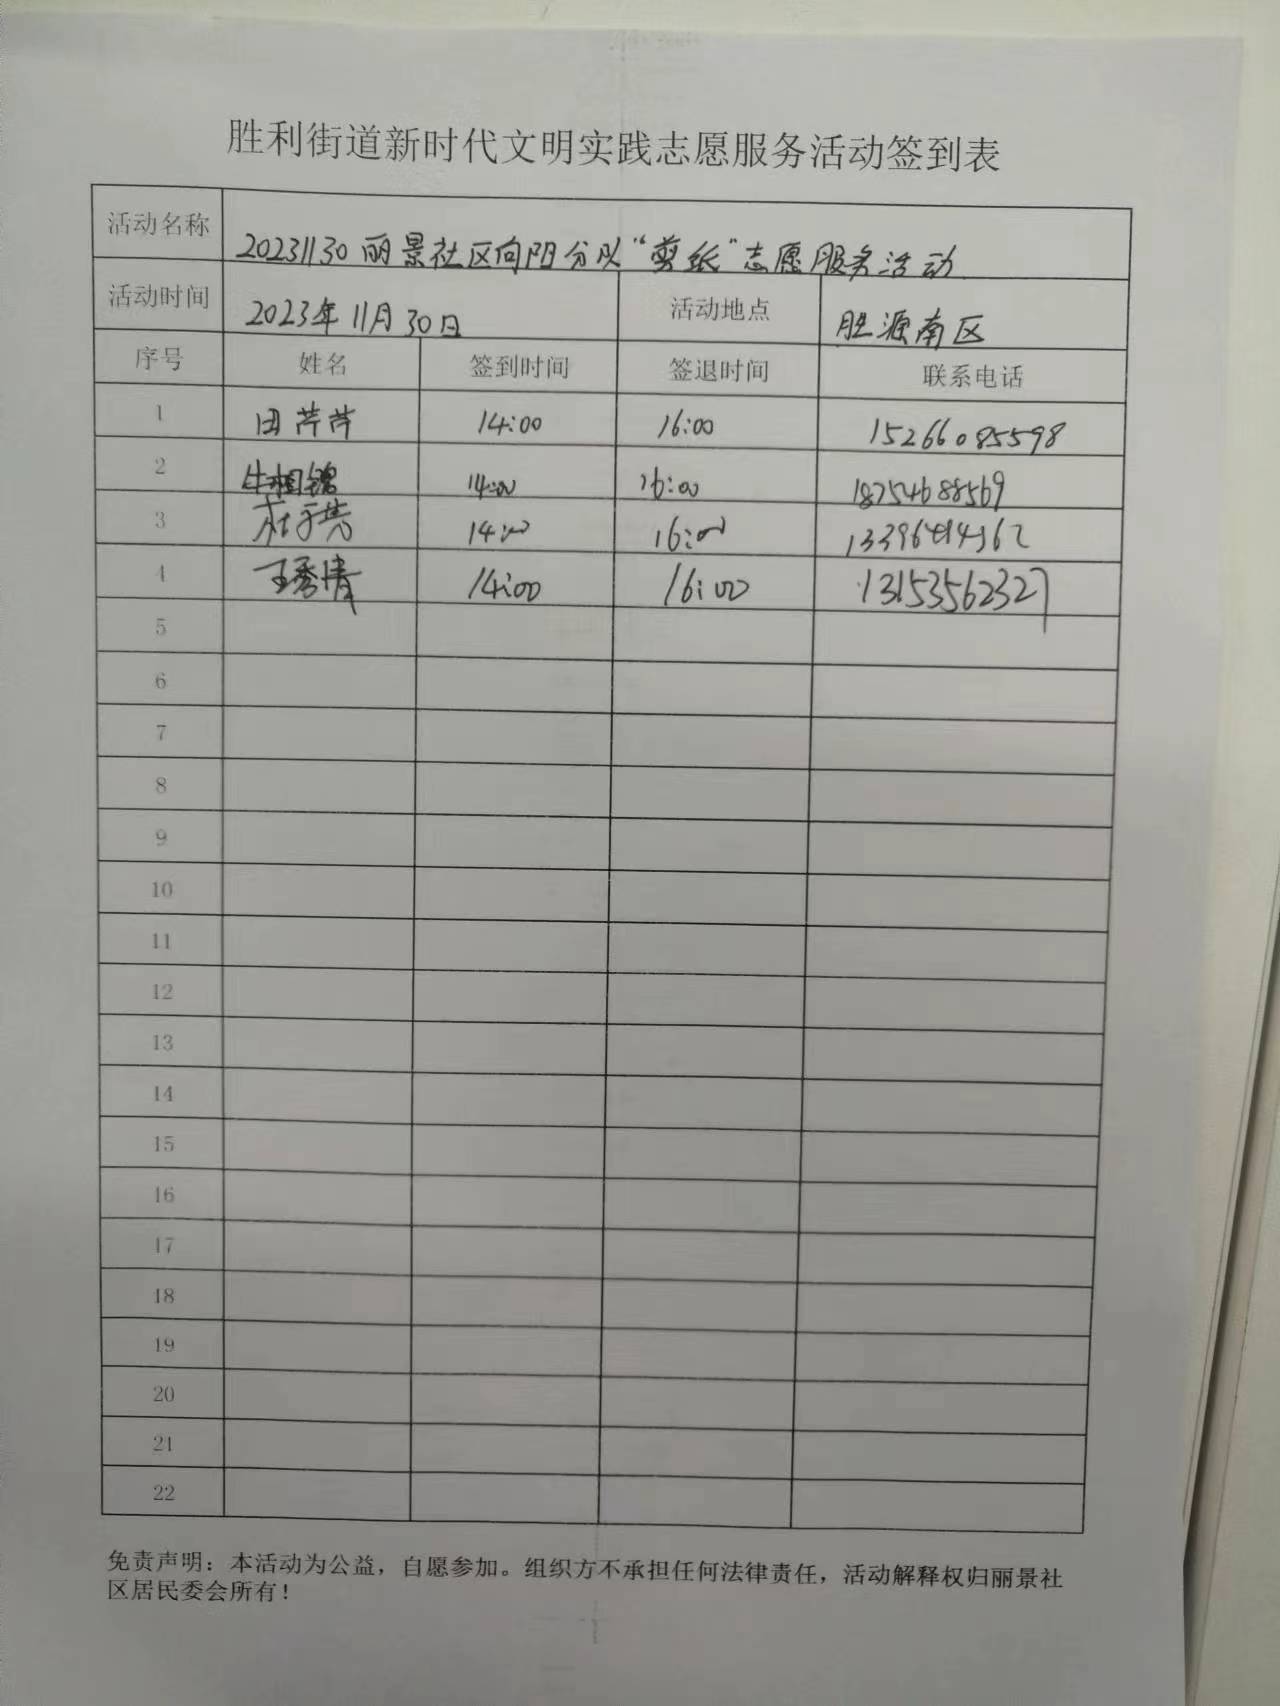 胜利街道新时代文明实践志愿服务活动签到表
活动名称 20231130丽景社区向阳分队“剪纸”志愿服务活动
活动时间 2023年11月30日 活动地点 胜源南区
序号 姓名 签到时间 签退时间 联系电话
1 田芹芹 14:00 16:00 15266085598
2 牛相锦 14:00 16:00 18254688569
3 14:00 16:00
4 王秀清 14:00 16:00 13153562327
5
6
7
8
9
10
11
12
13
14
15
16
17
18
19
20
21
22
免责声明：本活动为公益，自愿参加。组织方不承担任何法律责任，活动解释权归丽景社
区居民委会所有！